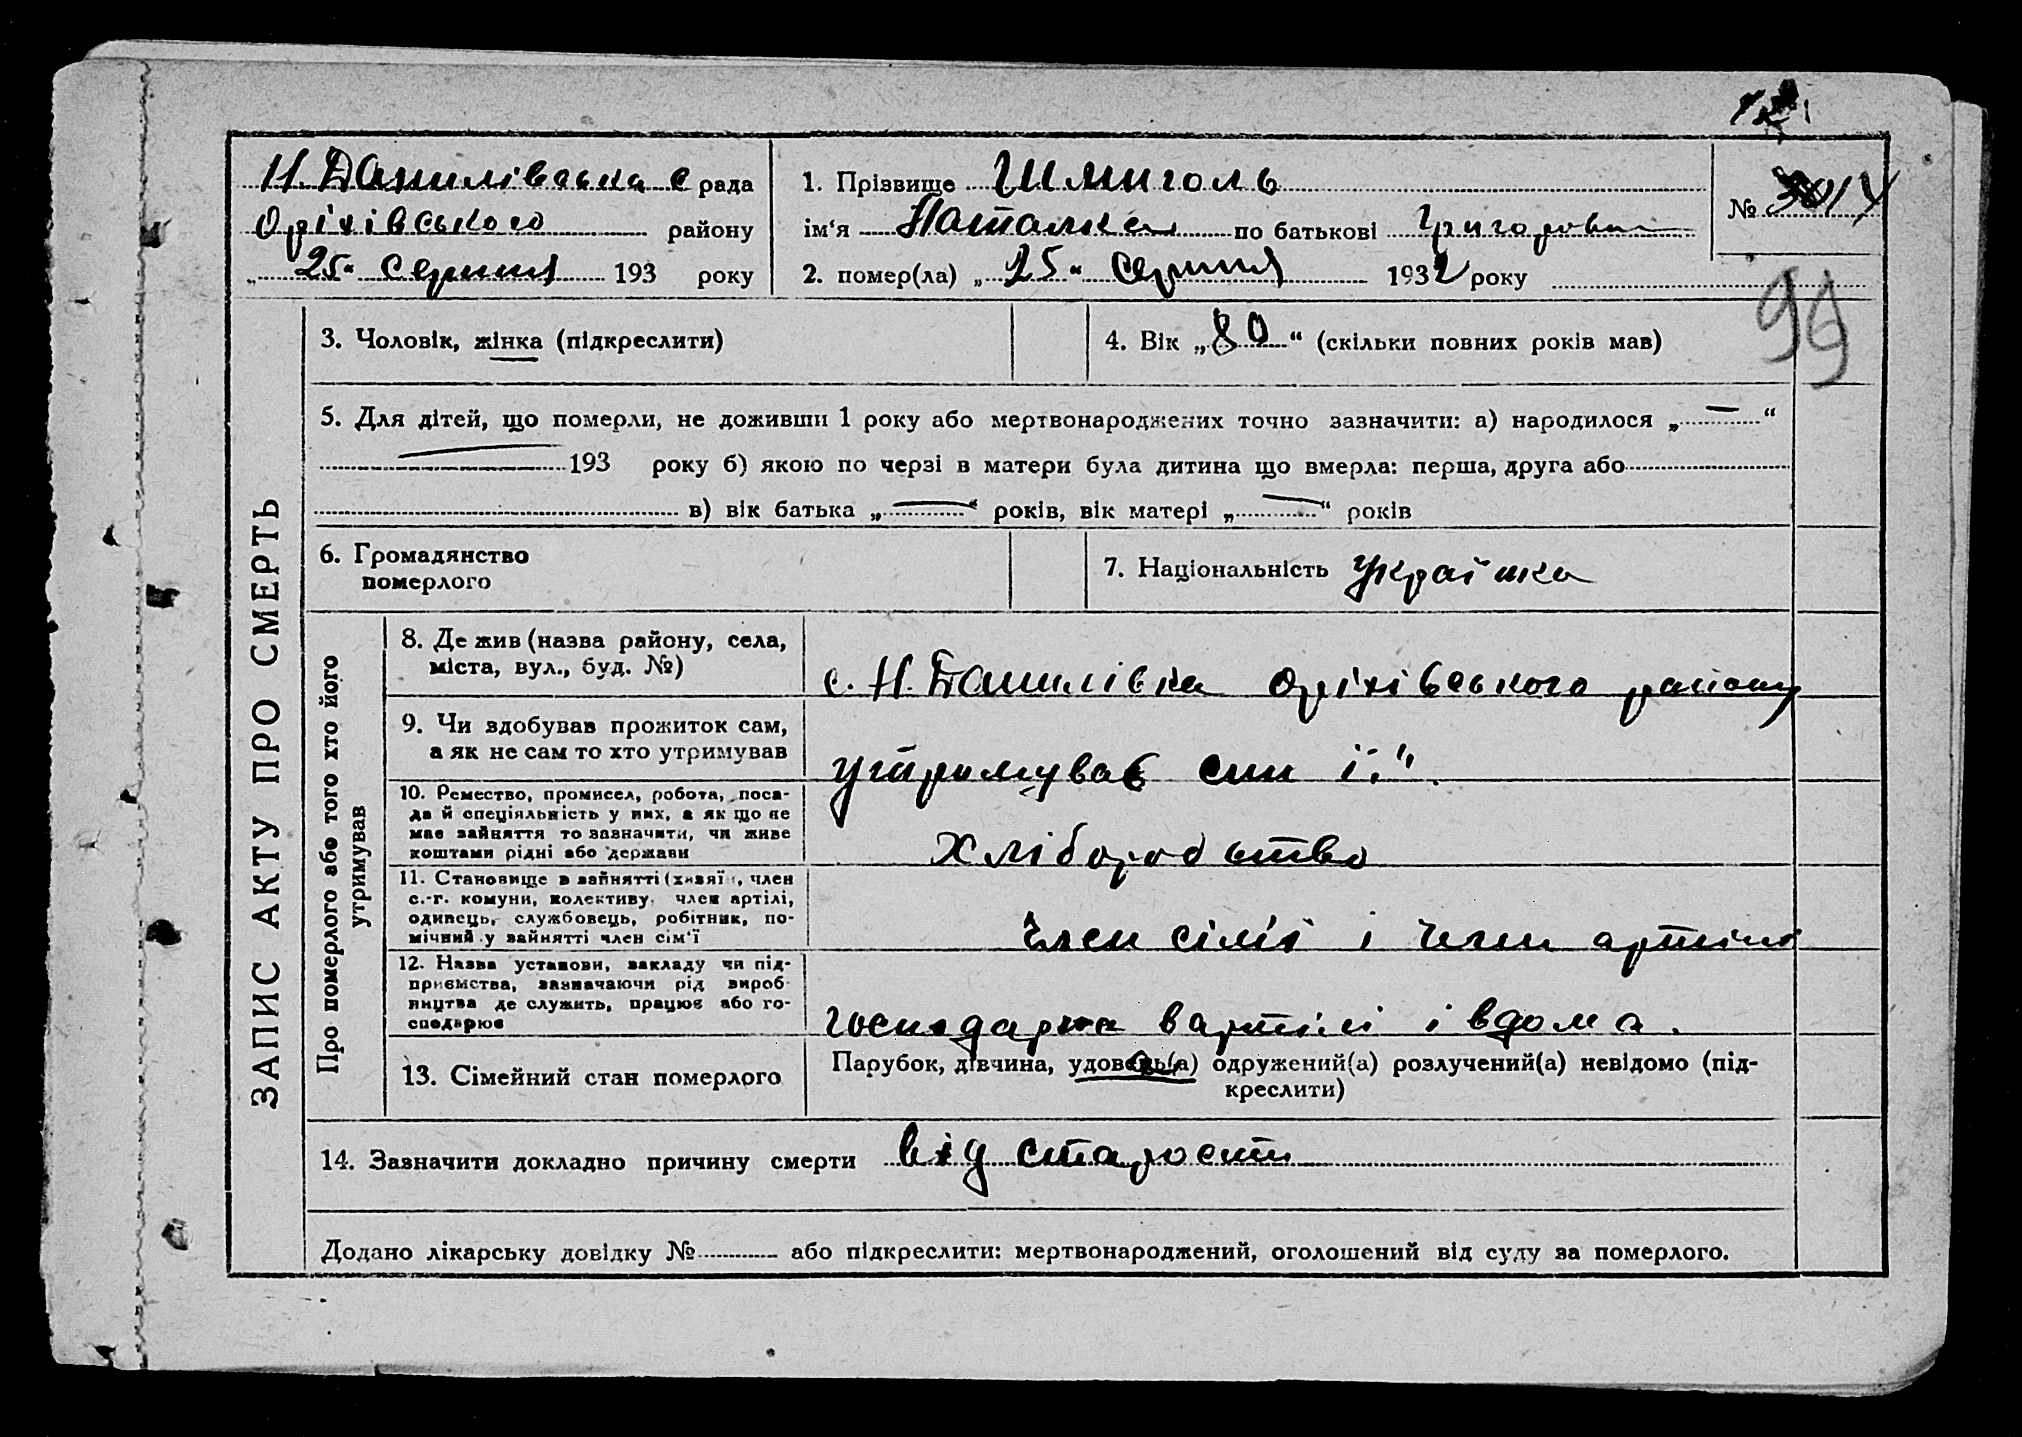 Н. Данилівська с рада
Оріхівського району
„25“ Серпня 193 року
1. Прізвище Шмиголь
ім‘я Наталка по батькові Григоровна
2. помер(ла) „25“ Серпня 1932 року
№
99
3. Чоловік, жінка (підкреслити)
4. Вік „80“ (скільки повних років мав)
5. Для дітей, що померли, не доживши 1 року або мертвонароджених точно зазначити: а) народилося „—“
193 року б) якою по черзі в матери була дитина що вмерла: перша, друга або
в) вік батька „—“ років, вік матері „—“ років
6. Громадянство
померлого
7. Національність Українка
ЗАПИС АКТУ ПРО СМЕРТЬ
Про померлого або того хто його
утримував
8. Де жив (назва району, села,
міста, вул., буд. №)
с. Н. Данилівка Оріхівського району
9. Чи здобував прожиток сам,
а як не сам то хто утримував
утримував син її.
10. Ремество, промисел, робота, поса-
да й спеціяльність у них, а як що не
має зайняття то зазначити, чи живе
коштами рідні або держави
Хліборобство
11. Становище в зайнятті (хазяїн, член
с.-г. комуни, колективу, член артілі,
одинець, службовець, робітник, по-
мічний у зайнятті член сім‘ї
Член сімї і член артілі
12. Назва установи, закладу чи під-
приємства, зазначаючи рід вироб-
ництва де служить, працює або го-
сподарює
в артілі і вдома.
13. Сімейний стан померлого
Парубок, дівчина, удовець(а) одружений(а) розлучений(а) невідомо (під-
креслити)
14. Зазначити докладно причину смерти від старости
Додано лікарську довідку № або підкреслити: мертвонароджений, оголошений від суду за померлого.